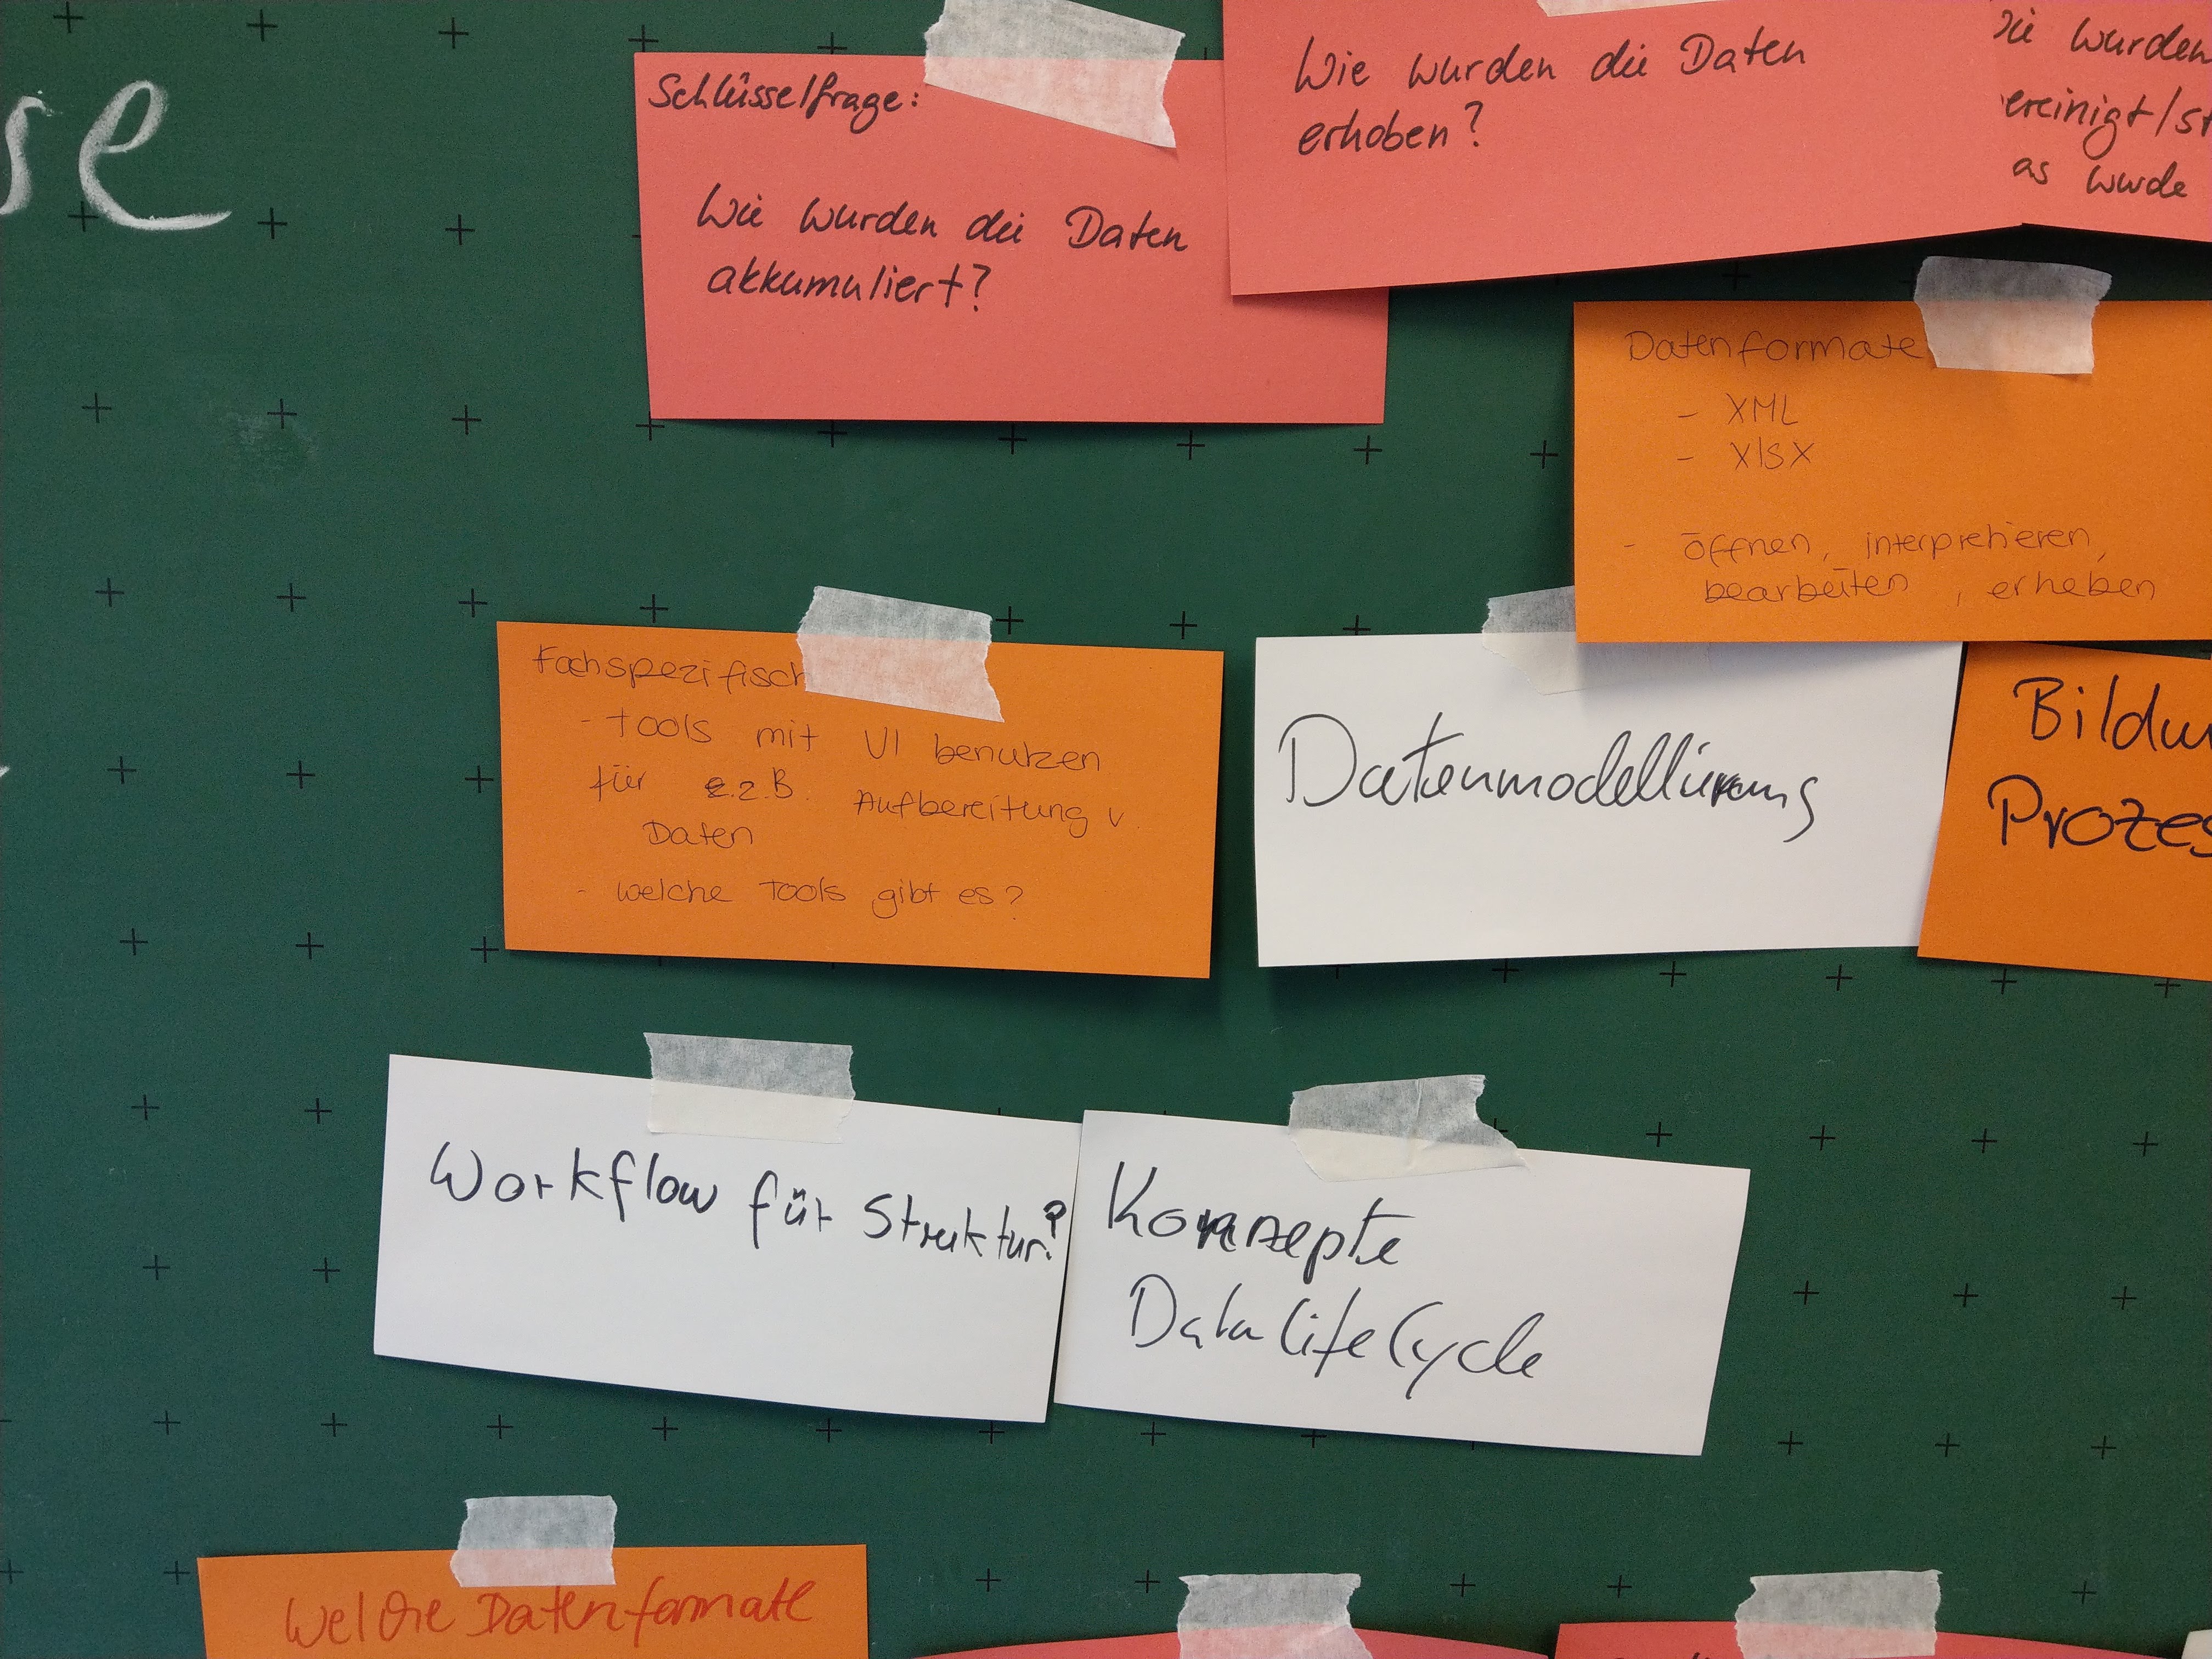 se
Schlüsselfrage:
Wie wurden die Daten
akkumuliert?
Wie wurden die Daten
erhoben?
wurden
as wurde
Datenformate
- XML
- XlSX
- öffnen, interpretieren,
bearbeiten, erheben
Fachspezifisch
- Tools mit UI benutzen
für z.B. Aufbereitung v.
Daten
- welche Tools gibt es?
Datenmodellierung
Bildu
Prozes
Workflow für Struktur?
Konzepte
Data Life Cycle
Welche Datenformate